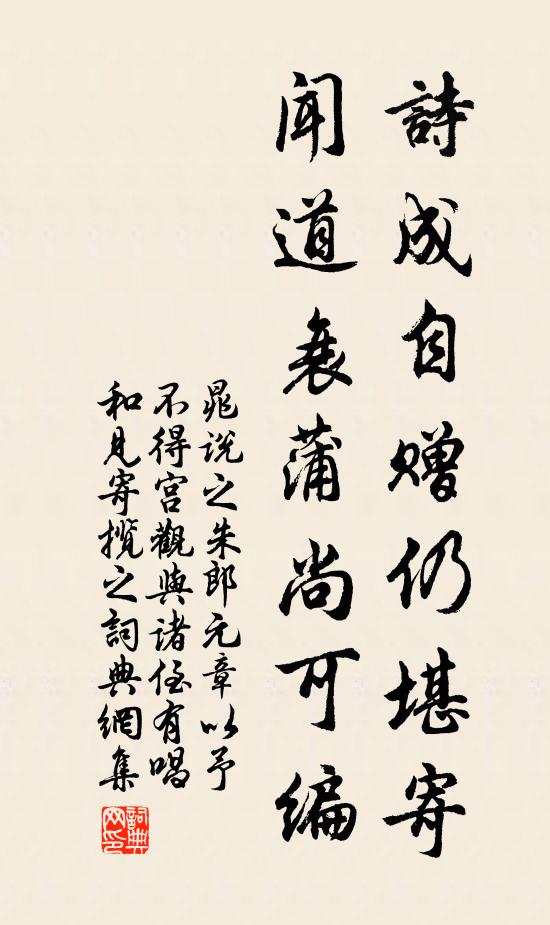 詩成自贈仍堪寄
聞道衰蒲尚可編
晁説之朱郎元章以予
不得宮觀與諸侄有唱
和見寄攬之詞典網集
詞典網印